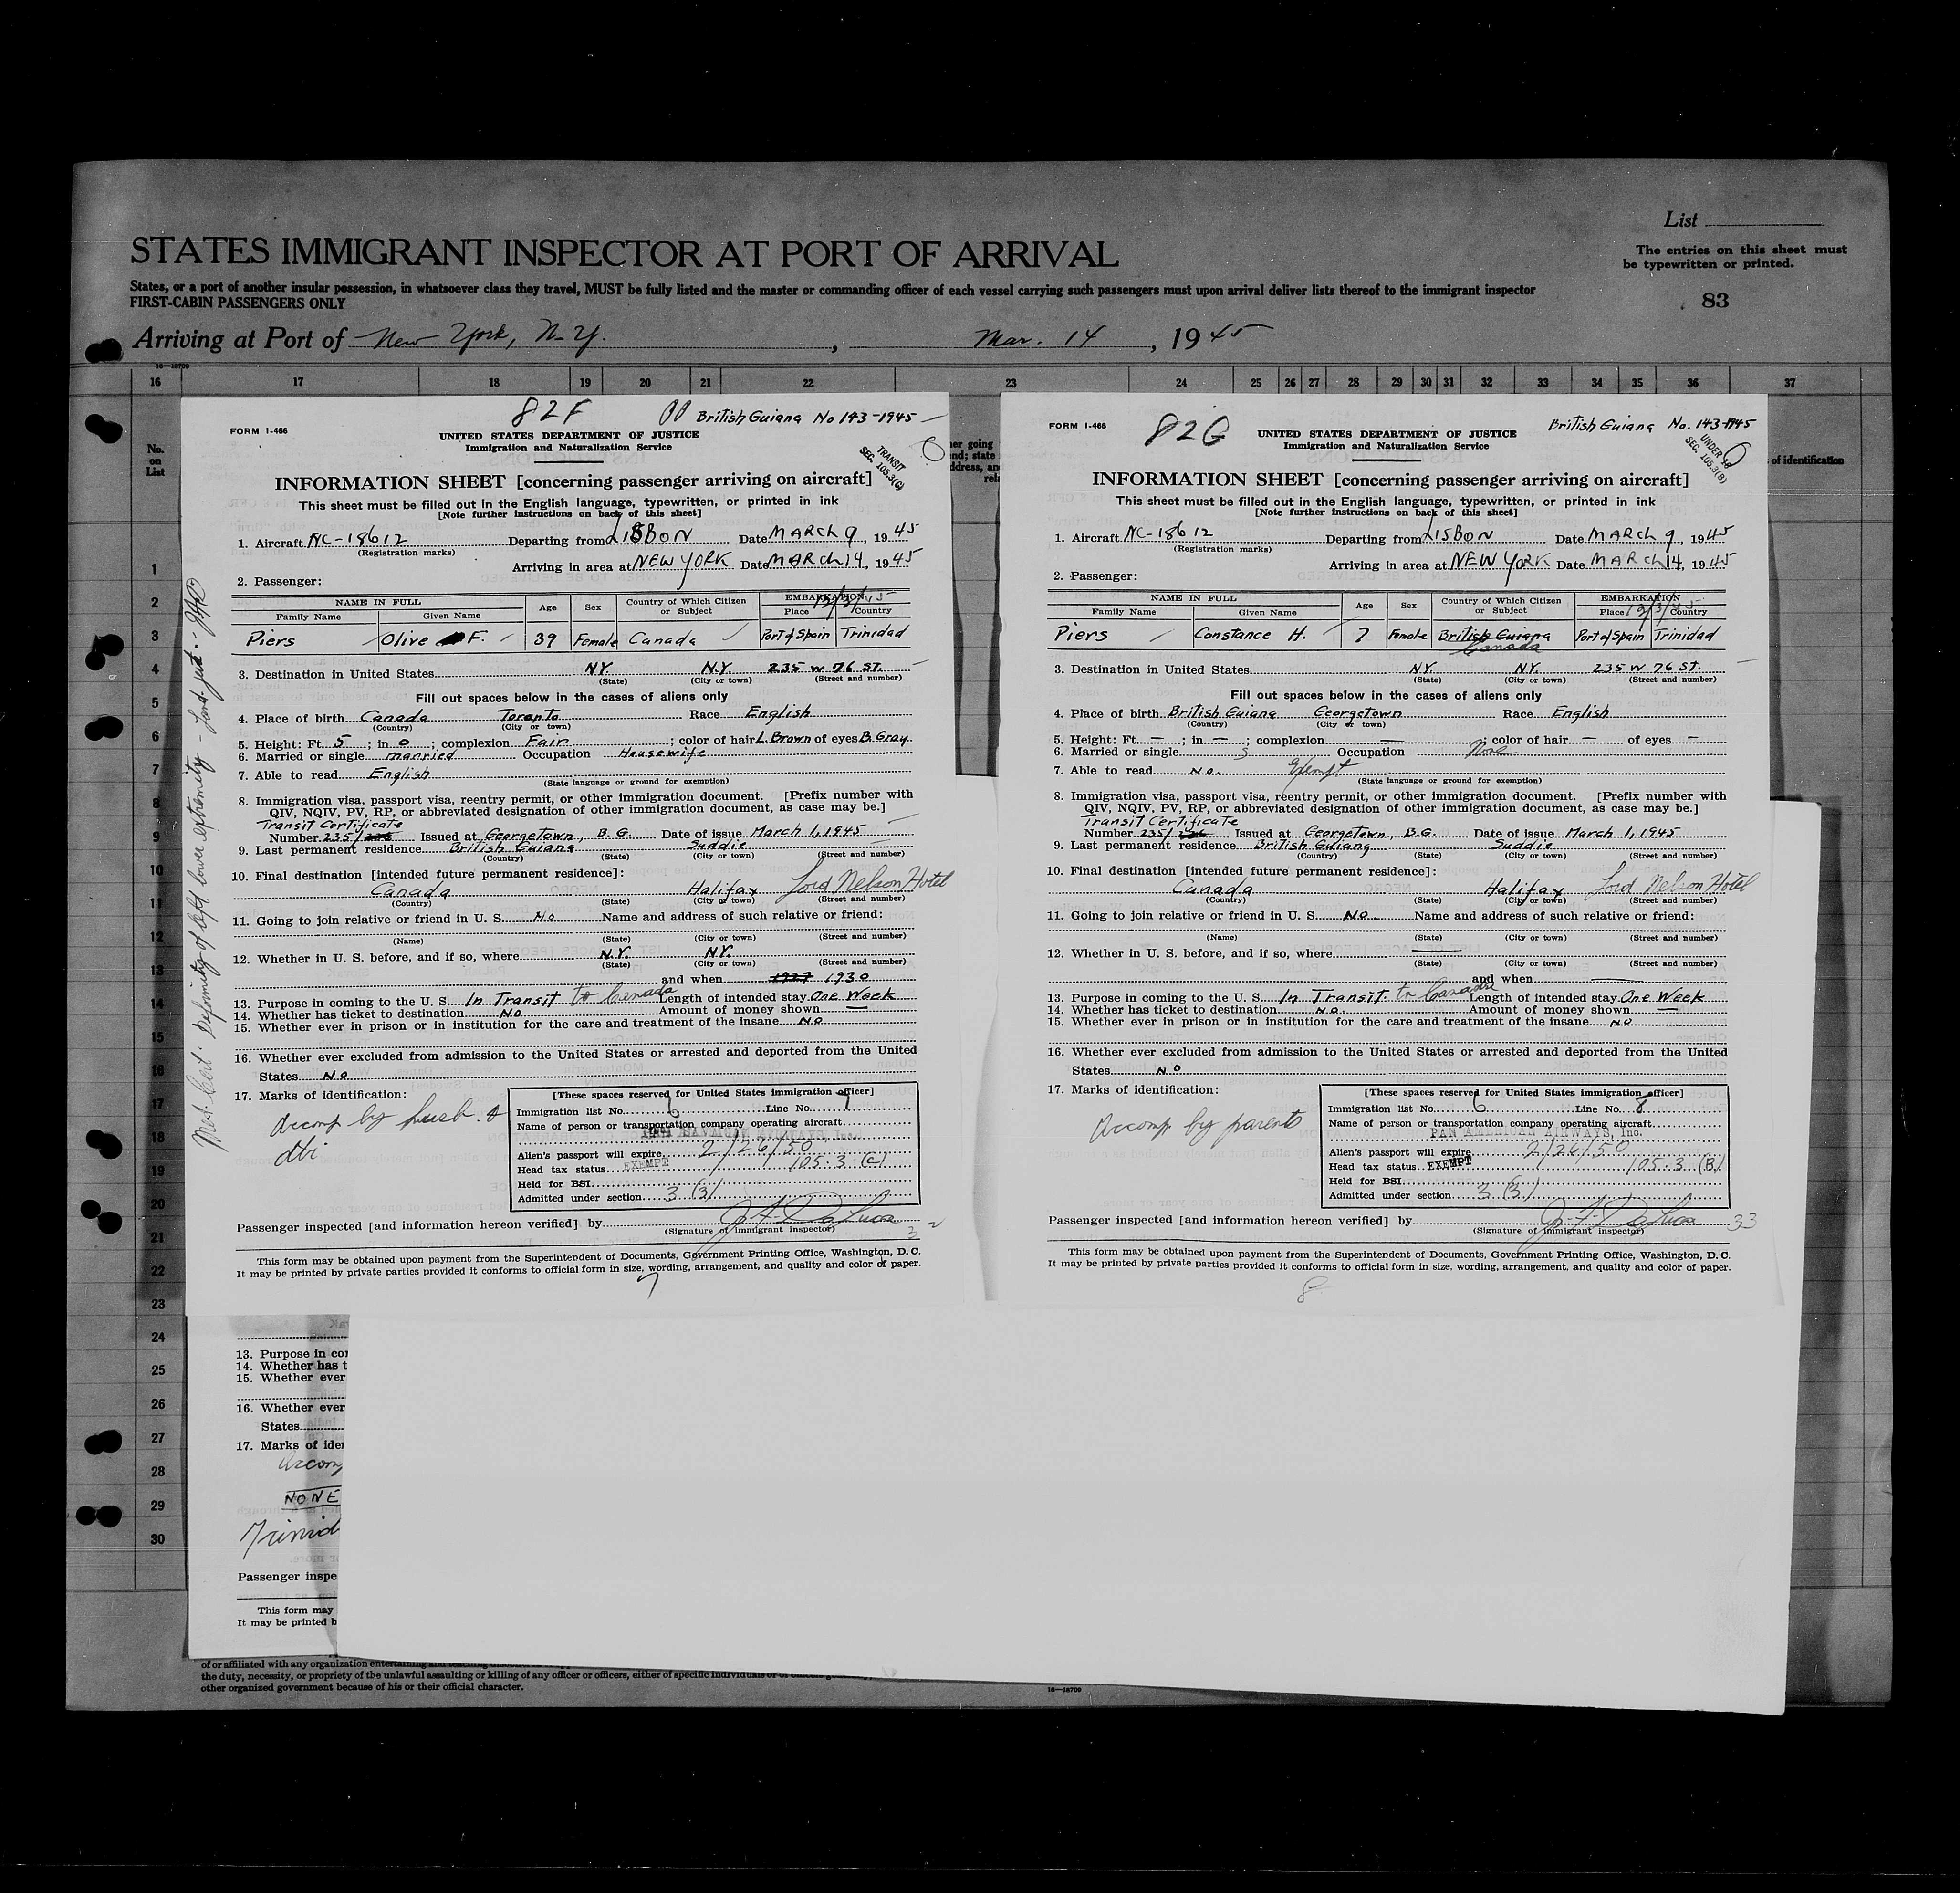 List
The entries on this sheet must
be typewritten or printed.
STATES IMMIGRANT INSPECTOR AT PORT OF ARRIVAL
States, or a port of another insular possession, in whatsoever class they travel, MUST be fully listed and the master or commanding officer of each vessel carrying such passengers must upon arrival deliver lists thereof to the immigrant inspector
FIRST-CABIN PASSENGERS ONLY
83
Arriving at Port of New York, N.Y. , Mar. 14 , 1945
16—18709
16 17 18 19 20 21 22 23 24 25 26 27 28 29 30 31 32 33 34 35 36 37
No. on List
of identification
1
2
3
4
5
6
7
8
9
10
11
12
13
14
15
16
17
18
19
20
21
22
23
24
25
26
27
28
29
30
82F British Guiana No 143-1945
FORM I-466
UNITED STATES DEPARTMENT OF JUSTICE
Immigration and Naturalization Service
TRANSIT
SEC. 105.3(C)
INFORMATION SHEET [concerning passenger arriving on aircraft]
This sheet must be filled out in the English language, typewritten, or printed in ink
[Note further instructions on back of this sheet]
1. Aircraft NC-18612 Departing from LISBON Date MARCH 9, 1945
(Registration marks)
Arriving in area at NEW YORK Date MARCH 14, 1945
2. Passenger:
NAME IN FULL Age Sex Country of Which Citizen or Subject EMBARKATION
Family Name Given Name Place Country
Piers Olive F. 39 Female Canada Port of Spain Trinidad
3. Destination in United States NY. N.Y. 235 W 76 ST.
(State) (City or town) (Street and number)
Fill out spaces below in the cases of aliens only
4. Place of birth Canada Toronto Race English
(Country) (City or town)
5. Height: Ft. 5 ; in 0 ; complexion Fair ; color of hair L. Brown of eyes B. Gray
6. Married or single married Occupation Housewife
7. Able to read English
(State language or ground for exemption)
8. Immigration visa, passport visa, reentry permit, or other immigration document. [Prefix number with
QIV, NQIV, PV, RP, or abbreviated designation of other immigration document, as case may be.]
Transit Certificate
Number 235/ Issued at Georgetown, B.G. Date of issue March 1, 1945
9. Last permanent residence British Guiana Suddie
(Country) (State) (City or town) (Street and number)
10. Final destination [intended future permanent residence]:
Canada Halifax Lord Nelson Hotel
(Country) (State) (City or town) (Street and number)
11. Going to join relative or friend in U. S. No Name and address of such relative or friend:
(Name) (State) (City or town) (Street and number)
12. Whether in U. S. before, and if so, where N.Y. N.Y.
(State) (City or town) (Street and number)
and when 1927 1930
13. Purpose in coming to the U. S. In Transit to Canada Length of intended stay One Week
14. Whether has ticket to destination No Amount of money shown —
15. Whether ever in prison or in institution for the care and treatment of the insane No
16. Whether ever excluded from admission to the United States or arrested and deported from the United
States No
17. Marks of identification:
Accomp by husb. &
[These spaces reserved for United States immigration officer]
Immigration list No. 6 Line No. 7
Name of person or transportation company operating aircraft
Alien's passport will expire 2/26/50
Head tax status EXEMPT 105.3 (C)
Held for BSI
Admitted under section 3 (3)
Passenger inspected [and information hereon verified] by
(Signature of immigrant inspector)
This form may be obtained upon payment from the Superintendent of Documents, Government Printing Office, Washington, D. C.
It may be printed by private parties provided it conforms to official form in size, wording, arrangement, and quality and color of paper.
7
Med. Cert. Deformity of left lower extremity
82G British Guiana No. 143-1945
FORM I-466
UNITED STATES DEPARTMENT OF JUSTICE
Immigration and Naturalization Service
UNDER 16
SEC. 105.3(B)
INFORMATION SHEET [concerning passenger arriving on aircraft]
This sheet must be filled out in the English language, typewritten, or printed in ink
[Note further instructions on back of this sheet]
1. Aircraft NC-18612 Departing from LISBON Date MARCH 9, 1945
(Registration marks)
Arriving in area at NEW YORK Date MARCH 14, 1945
2. Passenger:
NAME IN FULL Age Sex Country of Which Citizen or Subject EMBARKATION
Family Name Given Name Place Country
Piers Constance H. 7 Female British Guiana Port of Spain Trinidad
Canada
3. Destination in United States NY. NY. 235 W 76 ST.
(State) (City or town) (Street and number)
Fill out spaces below in the cases of aliens only
4. Place of birth British Guiana Georgetown Race English
(Country) (City or town)
5. Height: Ft. — ; in — ; complexion — ; color of hair — of eyes —
6. Married or single S Occupation None
7. Able to read No. Exempt
(State language or ground for exemption)
8. Immigration visa, passport visa, reentry permit, or other immigration document. [Prefix number with
QIV, NQIV, PV, RP, or abbreviated designation of other immigration document, as case may be.]
Transit Certificate
Number 235/ Issued at Georgetown, B.G. Date of issue March 1, 1945
9. Last permanent residence British Guiana Suddie
(Country) (State) (City or town) (Street and number)
10. Final destination [intended future permanent residence]:
Canada Halifax Lord Nelson Hotel
(Country) (State) (City or town) (Street and number)
11. Going to join relative or friend in U. S. No Name and address of such relative or friend:
(Name) (State) (City or town) (Street and number)
12. Whether in U. S. before, and if so, where —
(State) (City or town) (Street and number)
and when —
13. Purpose in coming to the U. S. In Transit to Canada Length of intended stay One Week
14. Whether has ticket to destination No. Amount of money shown —
15. Whether ever in prison or in institution for the care and treatment of the insane No
16. Whether ever excluded from admission to the United States or arrested and deported from the United
States No
17. Marks of identification:
Accomp by parents
[These spaces reserved for United States immigration officer]
Immigration list No. 6 Line No. 8
Name of person or transportation company operating aircraft
PAN AMERICAN AIRWAYS, Inc.
Alien's passport will expire 2/26/50
Head tax status EXEMPT 105.3 (B)
Held for BSI
Admitted under section 3 (3)
Passenger inspected [and information hereon verified] by 33
(Signature of immigrant inspector)
This form may be obtained upon payment from the Superintendent of Documents, Government Printing Office, Washington, D. C.
It may be printed by private parties provided it conforms to official form in size, wording, arrangement, and quality and color of paper.
8
13. Purpose in co
14. Whether has t
15. Whether ever
16. Whether ever
States
17. Marks of ide
Accomp
NONE
Trinid
Passenger inspe
This form may
It may be printed b
of or affiliated with any organization entertaining and teaching
the duty, necessity, or propriety of the unlawful assaulting or killing of any officer or officers, either of specific individuals or of
other organized government because of his or their official character.
16—18709